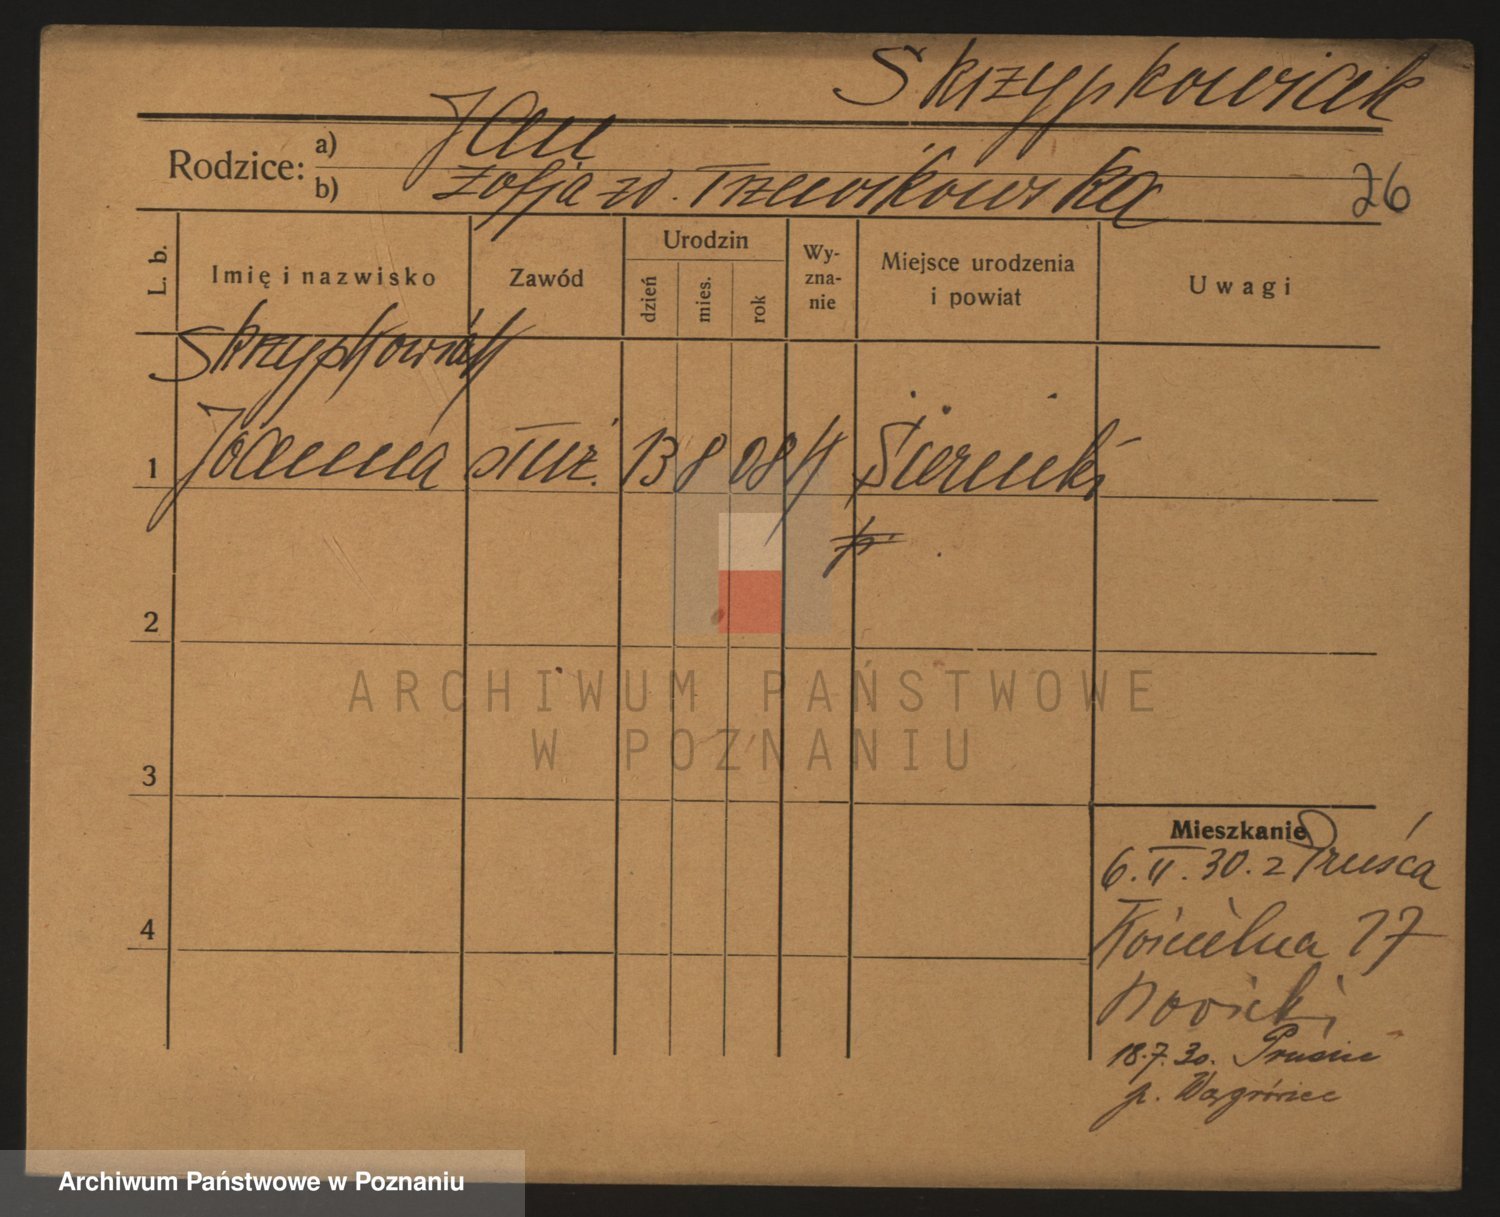 Skrzypkowiak
Rodzice: a) Jan
b) Zofja zd. Trzewikowska
26
L. b. Imię i nazwisko Zawód Urodzin dzień mies. rok Wy-zna-nie Miejsce urodzenia i powiat Uwagi
Skrzypkowiak
1 Joanna służ. 13 8 08 k Sierniki
2
3
4
Mieszkanie
6.II.30. z Pruśca
Kościelna 17
18.7.30. Prusiec
p. Wągrówiec
ARCHIWUM PAŃSTWOWE
W POZNANIU
Archiwum Państwowe w Poznaniu